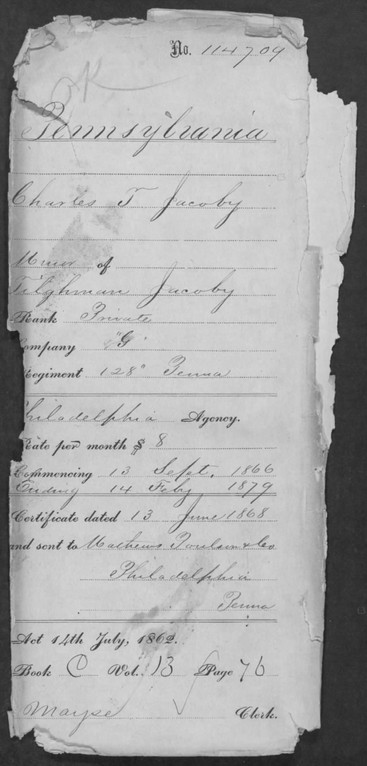 No. 114709
OK
Pennsylvania
Charles T Jacoby
Minor of
Tilghman Jacoby
Rank Private
Company "G"
Regiment 128" Penna
Philadelphia Agency.
Rate per month $ 8
Commencing 13 Sept. 1866
Ending 14 Feby 1879
Certificate dated 13 June 1868
and sent to Mathews Poulson & Co
Philadelphia
Penna
Act 14th July, 1862.
Book C Vol. 13 Page 76
Mayse Clerk.